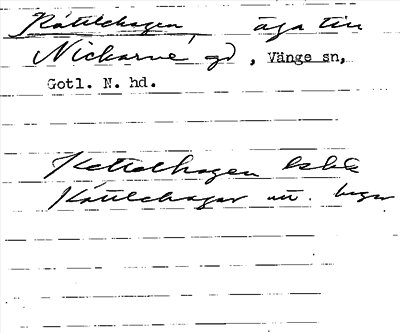 Kättlehagen, äga till
Nickarve gd, Vänge sn,
Gotl. N. hd.
Kettelhagen
Kättlehagar utt.